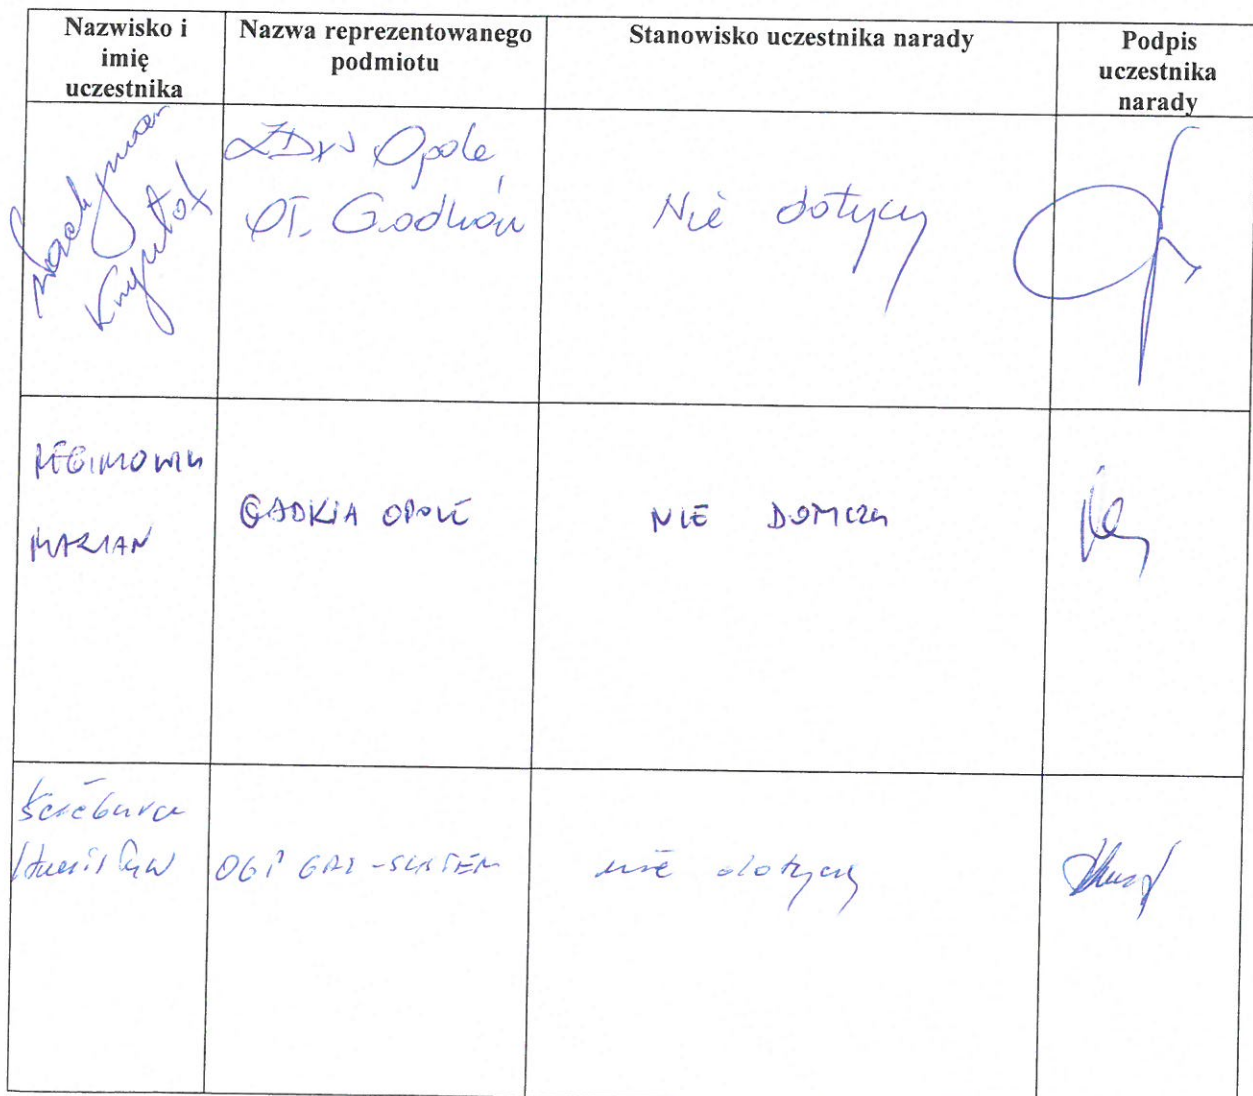 Nazwisko i
imię
uczestnika
Nazwa reprezentowanego
podmiotu
Stanowisko uczestnika narady
Podpis
uczestnika
narady
Krzysztof
Opole
OT. Grodków
Nie dotyczy
MARIAN
GDDKIA OPOLE
NIE DOTYCZY
Stanisław
OGP GAZ-SYSTEM
nie dotyczy